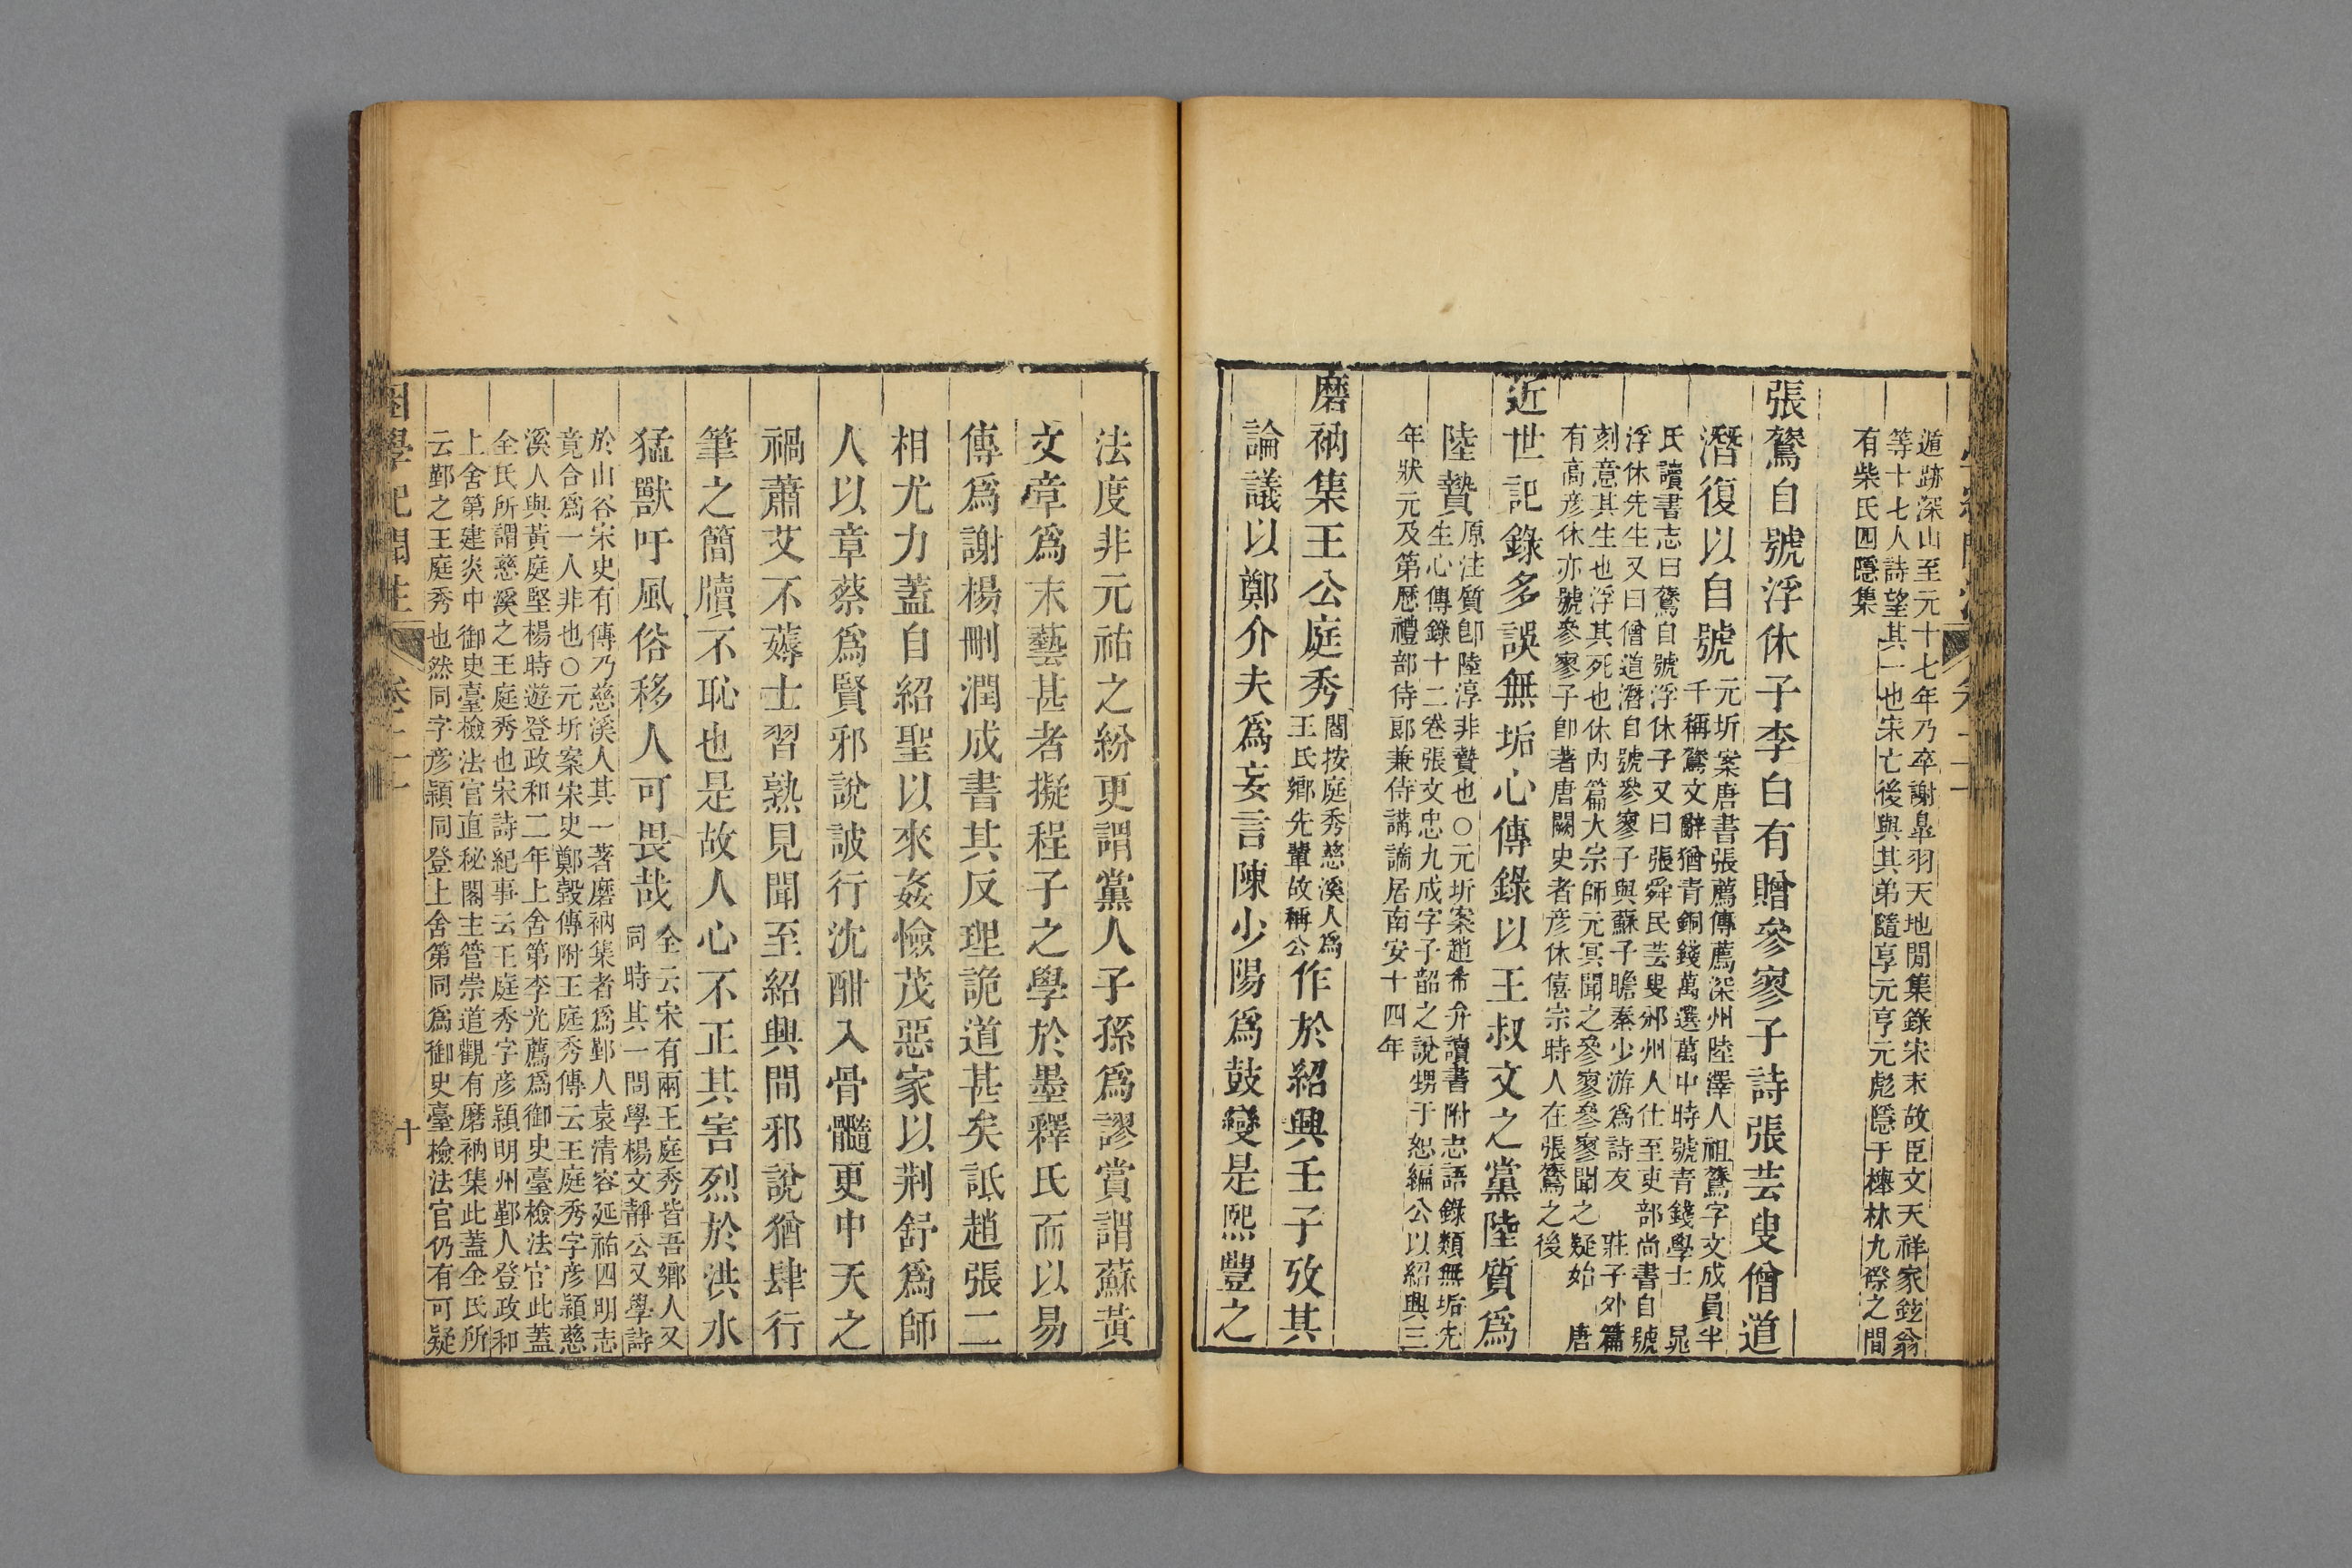 遁跡深山至元十七年乃卒謝皐羽天地間集錄宋末故臣文天祥家鉉翁
等十七人詩望其一也宋亡後與其弟隨亨元亨元彪隱于櫸林九磜之間
有柴氏四隱集
張鷟自號浮休子李白有贈參寥子詩張芸叟僧道
潛復以自號元圻案唐書張薦傳薦深州陸澤人祖鷟字文成員半
千稱鷟文辭猶青銅錢萬選萬中時號青錢學士 晁
氏讀書志曰鷟自號浮休子又曰張舜民芸叟邠州人仕至吏部尚書自號
浮休先生又曰僧道潛自號參寥子與蘇子瞻秦少游爲詩友 莊子外篇
刻意其生也浮其死也休內篇大宗師元冥聞之參寥參寥聞之疑始 唐
有高彥休亦號參寥子卽著唐闕史者彥休僖宗時人在張鷟之後
近世記錄多誤無垢心傳錄以王叔文之黨陸質爲
陸贄原注質卽陸淳非贄也○元圻案趙希弁讀書附志語錄類無垢先
生心傳錄十二卷張文忠九成字子韶之說甥于恕編公以紹興三
年狀元及第歷禮部侍郎兼侍講謫居南安十四年
磨衲集王公庭秀閻按庭秀慈溪人爲
王氏鄉先輩故稱公作於紹興壬子攷其
論議以鄭介夫爲妄言陳少陽爲鼓變是熙豐之
法度非元祐之紛更謂黨人子孫爲謬賞謂蘇黃
文章爲末藝甚者擬程子之學於墨釋氏而以易
傳爲謝楊刪潤成書其反理詭道甚矣詆趙張二
相尤力蓋自紹聖以來姦憸茂惡家以荆舒爲師
人以章蔡爲賢邪說詖行沈酣入骨髓更中天之
禍蕭艾不薅士習熟見聞至紹興間邪說猶肆行
筆之簡牘不恥也是故人心不正其害烈於洪水
猛獸吁風俗移人可畏哉全云宋有兩王庭秀皆吾鄉人又
同時其一問學楊文靜公又學詩
於山谷宋史有傳乃慈溪人其一著磨衲集者爲鄞人袁清容延祐四明志
竟合爲一人非也○元圻案宋史鄭㲄傳附王庭秀傳云王庭秀字彥穎慈
溪人與黃庭堅楊時遊登政和二年上舍第李光薦爲御史臺檢法官此蓋
全氏所謂慈溪之王庭秀也宋詩紀事云王庭秀字彥穎明州鄞人登政和
上舍第建炎中御史臺檢法官直秘閣主管崇道觀有磨衲集此蓋全氏所
云鄞之王庭秀也然同字彥穎同登上舍第同爲御史臺檢法官仍有可疑
困學紀聞注 卷二十 十